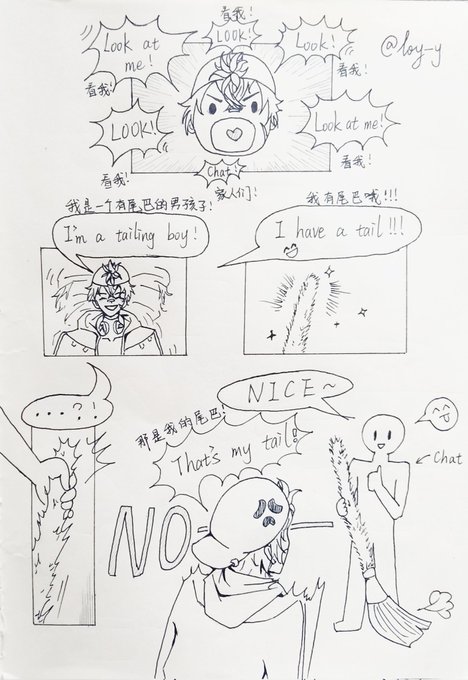 看我!
Look at
me!
LOOK!
Look!
@loy-y
看我!
看我!
LOOK!
Look at me!
看我!
Chat!
看我!
家人们!
我是一个有尾巴的男孩子!
I'm a tailing boy!
我有尾巴哦!!!
I have a tail!!!
....?!
NICE~
那是我的尾巴!
That's my tail!
Chat
NO